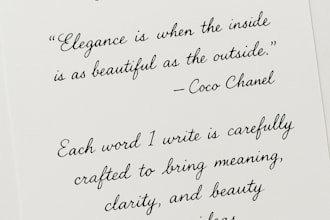 “Elegance is when the inside
is as beautiful as the outside.”
— Coco Chanel
Each word I write is carefully
crafted to bring meaning,
clarity, and beauty